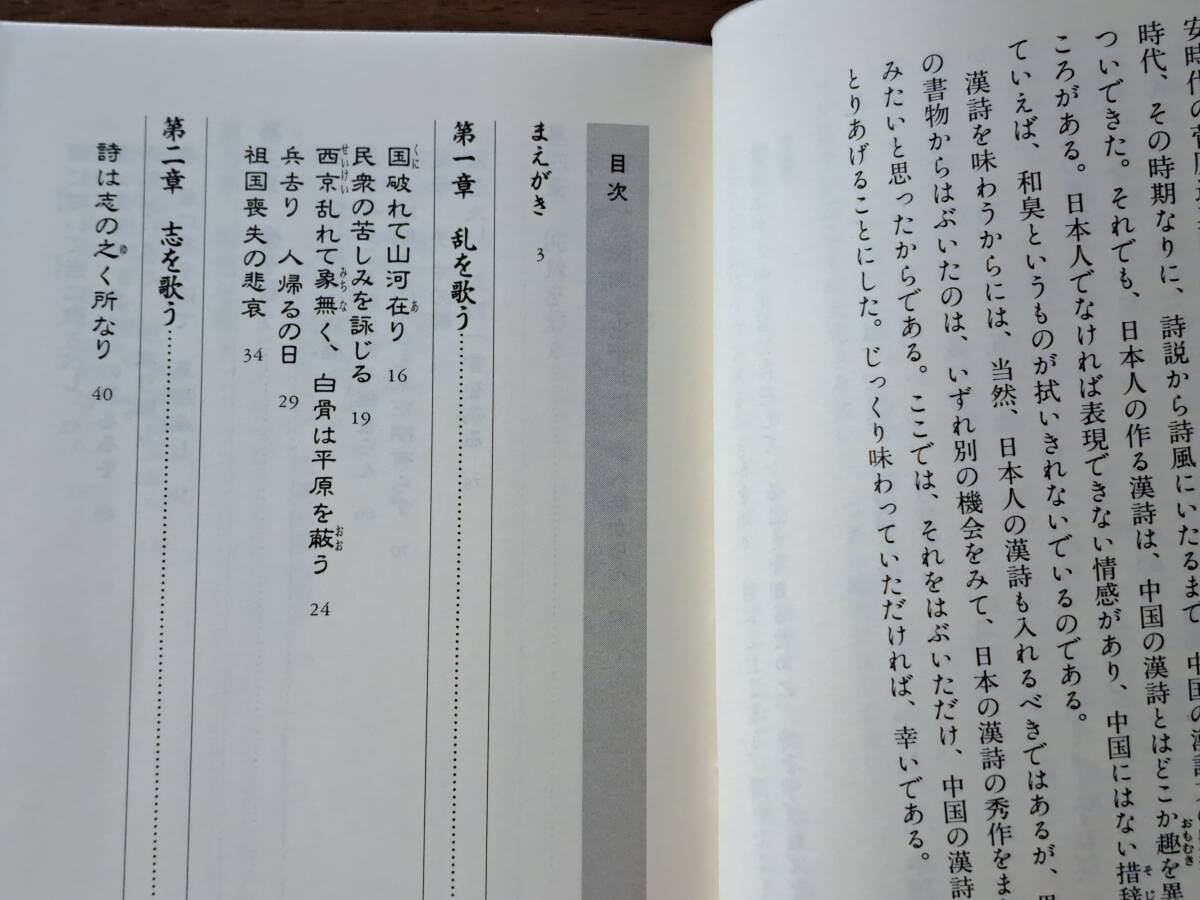 時代、その時期なりに、詩説から詩風にいたるまで、中国の漢詩
ついてきた。それでも、日本人の作る漢詩は、中国の漢詩とはどこか趣を異
ころがある。日本人でなければ表現できない情感があり、中国にはない措辞
ていえば、和臭というものが拭いきれないでいるのである。
漢詩を味わうからには、当然、日本人の漢詩も入れるべきではあるが、
の書物からはぶいたのは、いずれ別の機会をみて、日本の漢詩の秀作をま
みたいと思ったからである。ここでは、それをはぶいただけ、中国の漢詩
とりあげることにした。じっくり味わっていただければ、幸いである。
目次
まえがき 3
第一章 乱を歌う
国破れて山河在り 16
民衆の苦しみを詠じる 19
西京乱れて象無く、白骨は平原を蔽う 24
兵去り 人帰るの日 29
祖国喪失の悲哀 34
第二章 志を歌う
詩は志の之く所なり 40